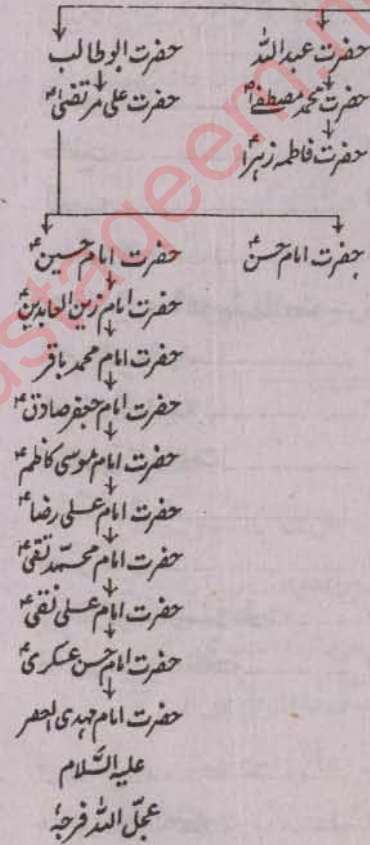 حضرت عبداللہ حضرت ابوطالب
حضرت محمد مصطفےٰؐ حضرت علی مرتضیٰؑ
حضرت فاطمہ زہراؑ
حضرت امام حسنؑ حضرت امام حسینؑ
حضرت امام زین العابدینؑ
حضرت امام محمد باقر
حضرت امام جعفر صادقؑ
حضرت امام موسیٰ کاظمؑ
حضرت امام علی رضاؑ
حضرت امام محمّد تقیؑ
حضرت امام علی نقیؑ
حضرت امام حسن عسکریؑ
حضرت امام مہدی العصر
علیہ السَّلام
عجّل اللہ فرجہٗ